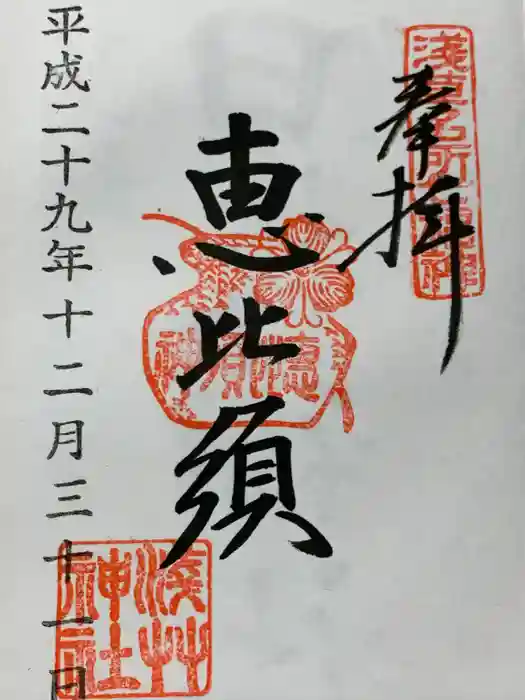 奉拝
淺草名所七福神
恵比須
恵比須神
淺草神社
平成二十九年十二月三十一日